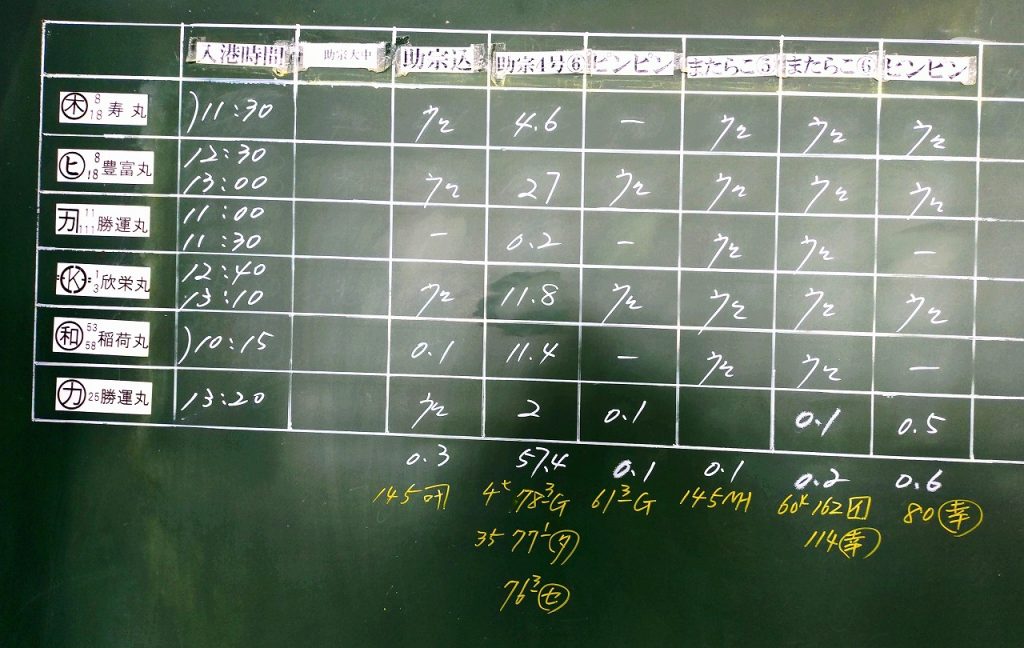 入港時間 助宗大中 助宗込 助宗4号⑥ ピンピン またらこ⑤ またらこ⑥ ピンピン
㊍ 8 18 寿丸 )11:30 ウロ 4.6 ー ウロ ウロ ウロ
ヒ 8 18 豊富丸 12:30 13:00 ウロ 27 ウロ ウロ ウロ ウロ
カ 11 111 勝運丸 11:00 11:30 ー 0.2 ー ウロ ウロ ー
K 1 3 欣栄丸 12:40 13:10 ウロ 11.8 ウロ ウロ ウロ ウロ
和 53 58 稲荷丸 )10:15 0.1 11.4 ー ウロ ウロ ー
カ 25 勝運丸 13:20 ウロ 2 0.1 0.1 0.5
0.3 57.4 0.1 0.1 0.2 0.6
145 4 78 3 G 61 3 G 145 60 162 80 幸
35 77 1 タ 114 幸
76 3 セ